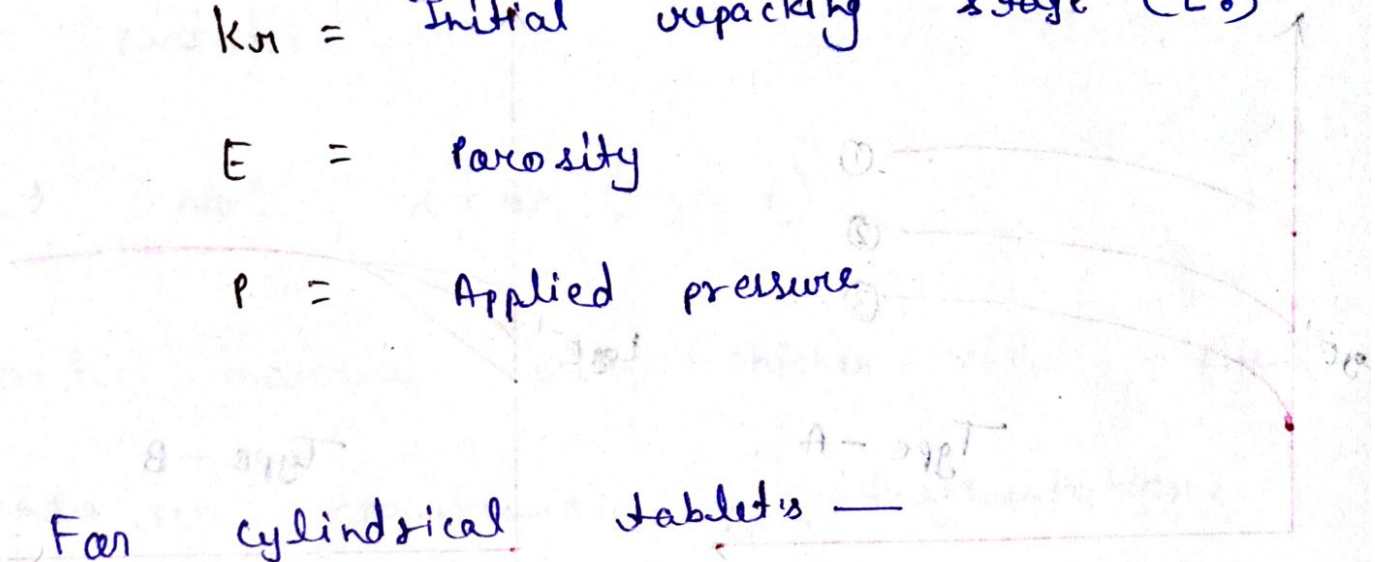 Kr = Initial repacking stage (E₀)
E = Porosity
P = Applied pressure
For cylindrical tablet's —